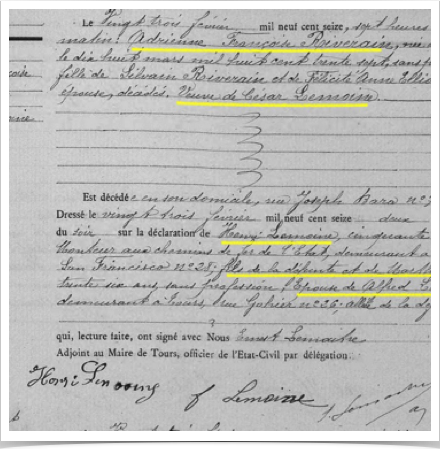 Le vingt trois février mil neuf cent seize, sept heures
matin: Adrienne Françoise Riverain, née
le dix huit mars mil huit cent trente sept, sans
fille de Silvain Riverain et de Félicité Anne
épouse, décédés, Veuve de César Lemoine.
Est décédée en son domicile, rue Joseph Bara n°
Dressé le vingt trois février mil neuf cent seize deux
du soir sur la déclaration de Henri Lemoine, cinquante
aux chemins de fer de l'Etat, demeurant
San Francisco n° 28, fils de la défunte et de
trente six ans, sans profession, Epouse de Alfred
demeurant à Tours, rue n° 26, de la
qui, lecture faite, ont signé avec Nous Ernest Lemaitre
Adjoint au Maire de Tours, officier de l'Etat-Civil par délégation.
Henri Lemoine f Lemoine